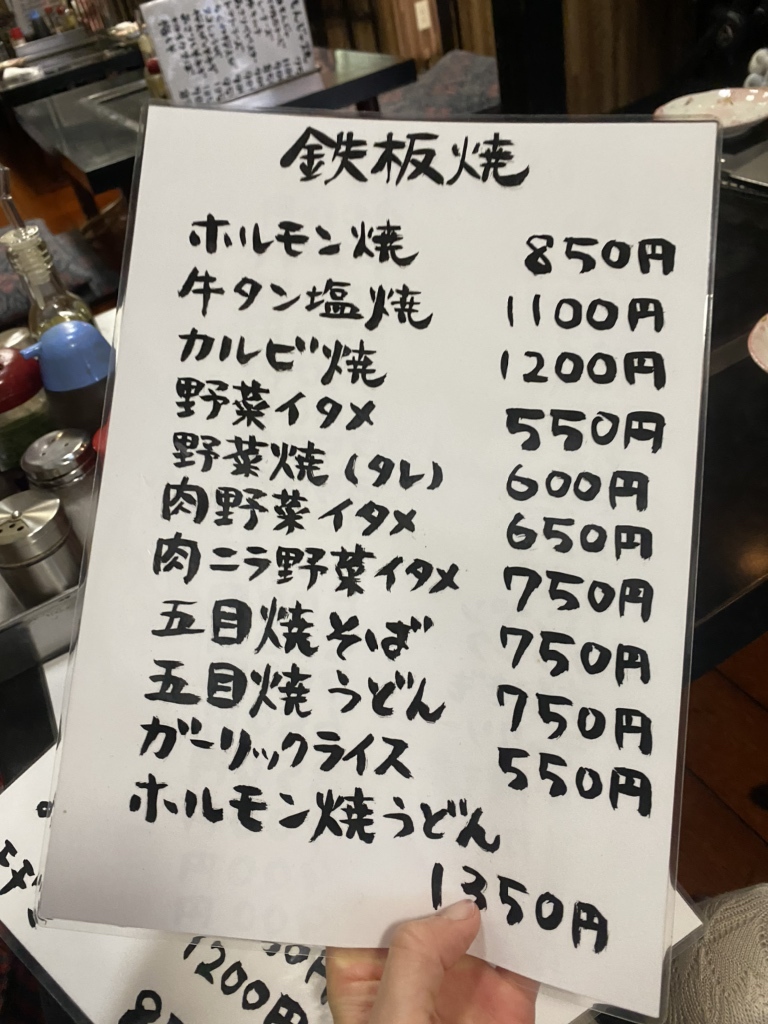 鉄板焼
ホルモン焼 850円
牛タン塩焼 1100円
カルビ焼 1200円
野菜イタメ 550円
野菜焼(タレ) 600円
肉野菜イタメ 650円
肉ニラ野菜イタメ 750円
五目焼そば 750円
五目焼うどん 750円
ガーリックライス 550円
ホルモン焼うどん
1350円
1200円